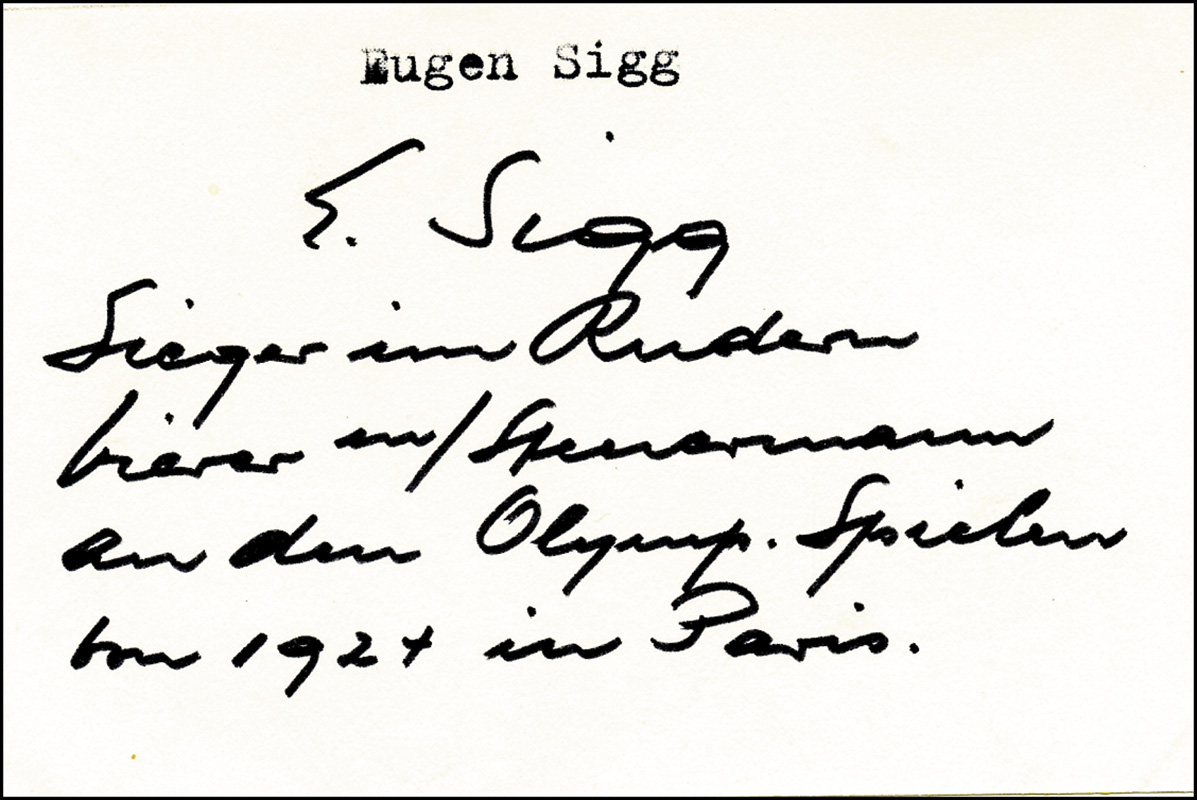 Eugen Sigg
E. Sigg
Sieger im Rudern
vierer m/Steuermann
an den Olymp. Spielen
von 1924 in Paris.